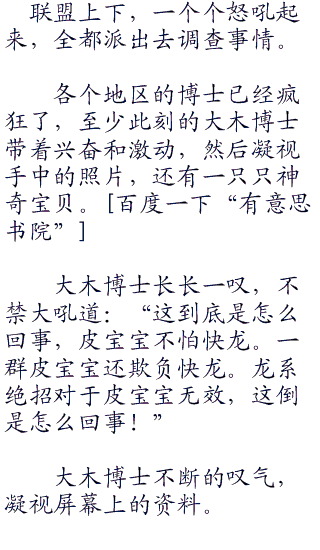 联盟上下，一个个怒吼起
来，全都派出去调查事情。
各个地区的博士已经疯
狂了，至少此刻的大木博士
带着兴奋和激动，然后凝视
手中的照片，还有一只只神
奇宝贝。[百度一下“有意思
书院”]
大木博士长长一叹，不
禁大吼道：“这到底是怎么
回事，皮宝宝不怕快龙。一
群皮宝宝还欺负快龙。龙系
绝招对于皮宝宝无效，这倒
是怎么回事！”
大木博士不断的叹气，
凝视屏幕上的资料。